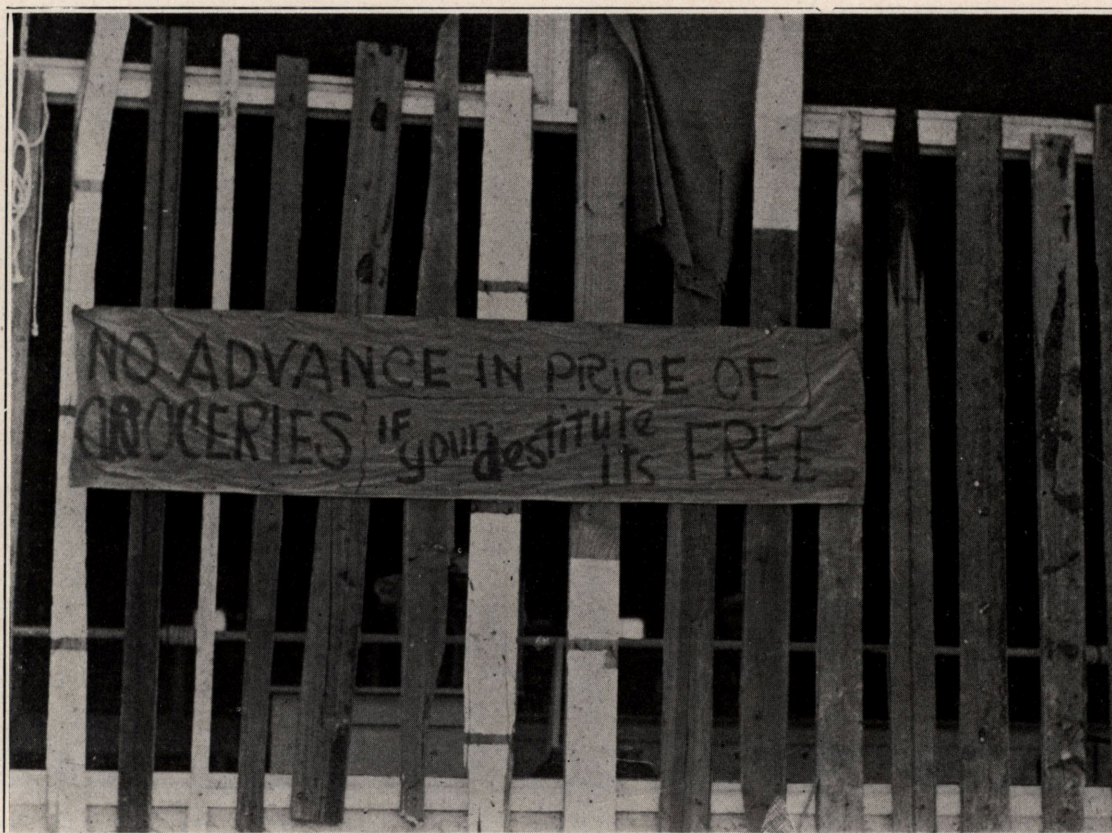 NO ADVANCE IN PRICE OF
GROCERIES IF your destitute its FREE